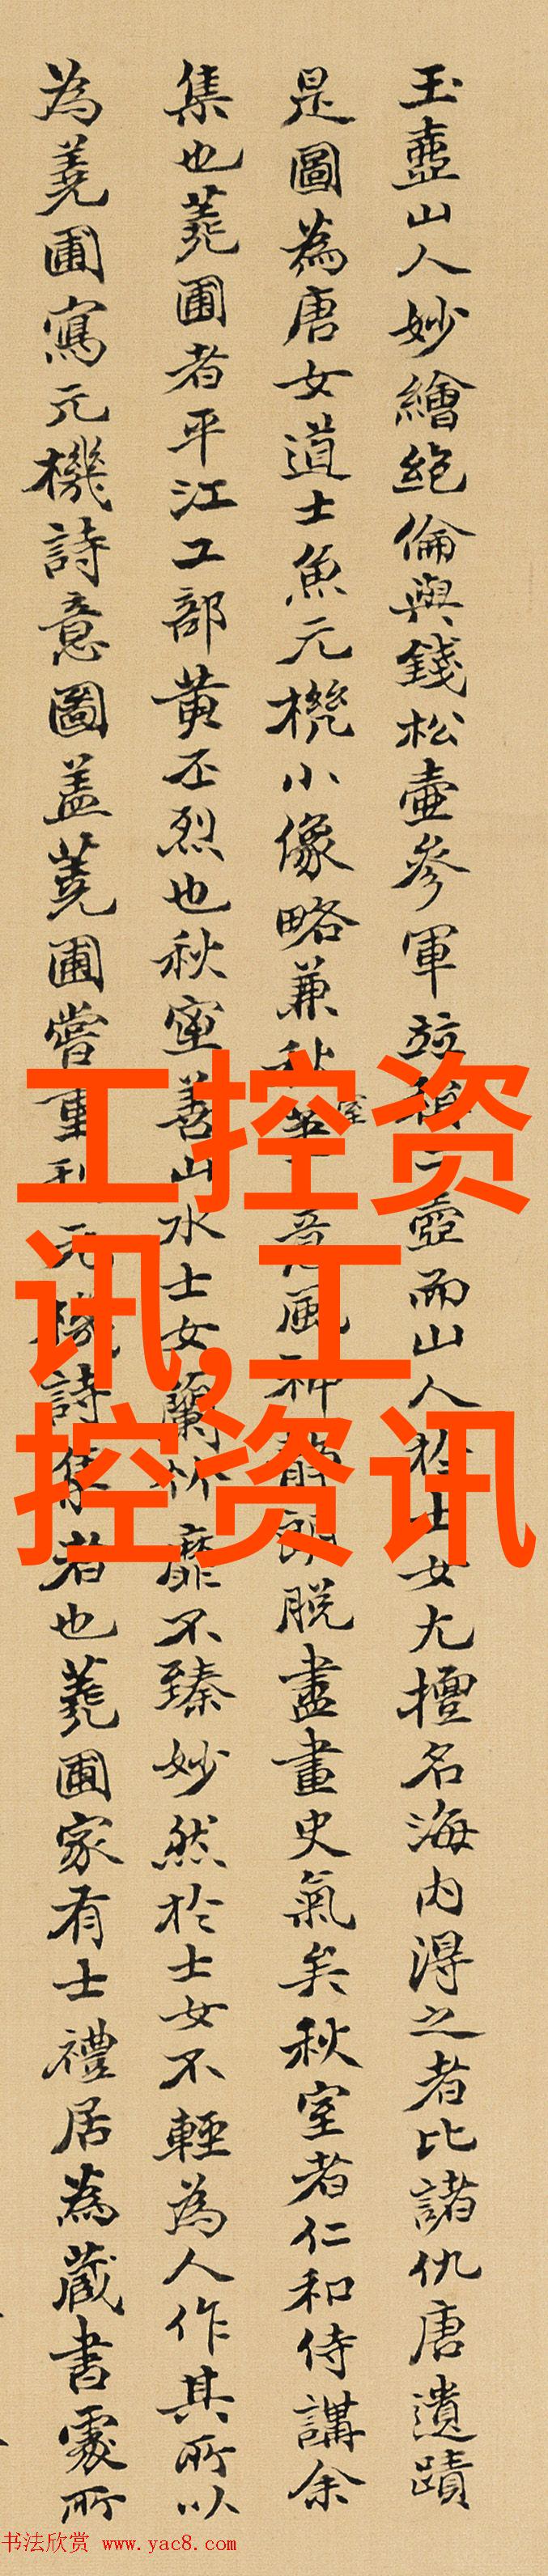 玉壺山人妙繪絶倫與錢松壺參軍竝稱二壺而山人於士女尤擅名海内得之者比諸仇唐遺蹟
是圖為唐女道士魚元機小像略兼秋室意風神靜朗脱盡畫史氣矣秋室者仁和侍講余
集也蕘圃者平江工部黄丕烈也秋室善山水士女蘭竹靡不臻妙然於士女不輕為人作其所以
為蕘圃寫元機詩意圖盖蕘圃嘗重刊元機詩集者也蕘圃家有士禮居為藏書處所
工控资
讯,工
控资讯
书法欣赏 www.yac8.com